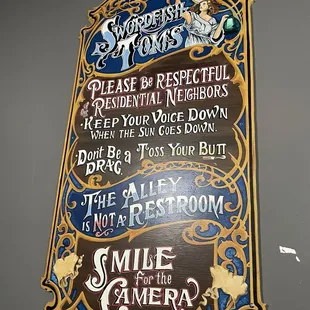 Swordfish
Tom's
Please Be Respectful
of Residential Neighbors
• Keep Your Voice Down
When the Sun Goes Down.
Don't Be a Toss Your Butt
Drag.
The Alley
is Not a Restroom
Smile
for the
Camera